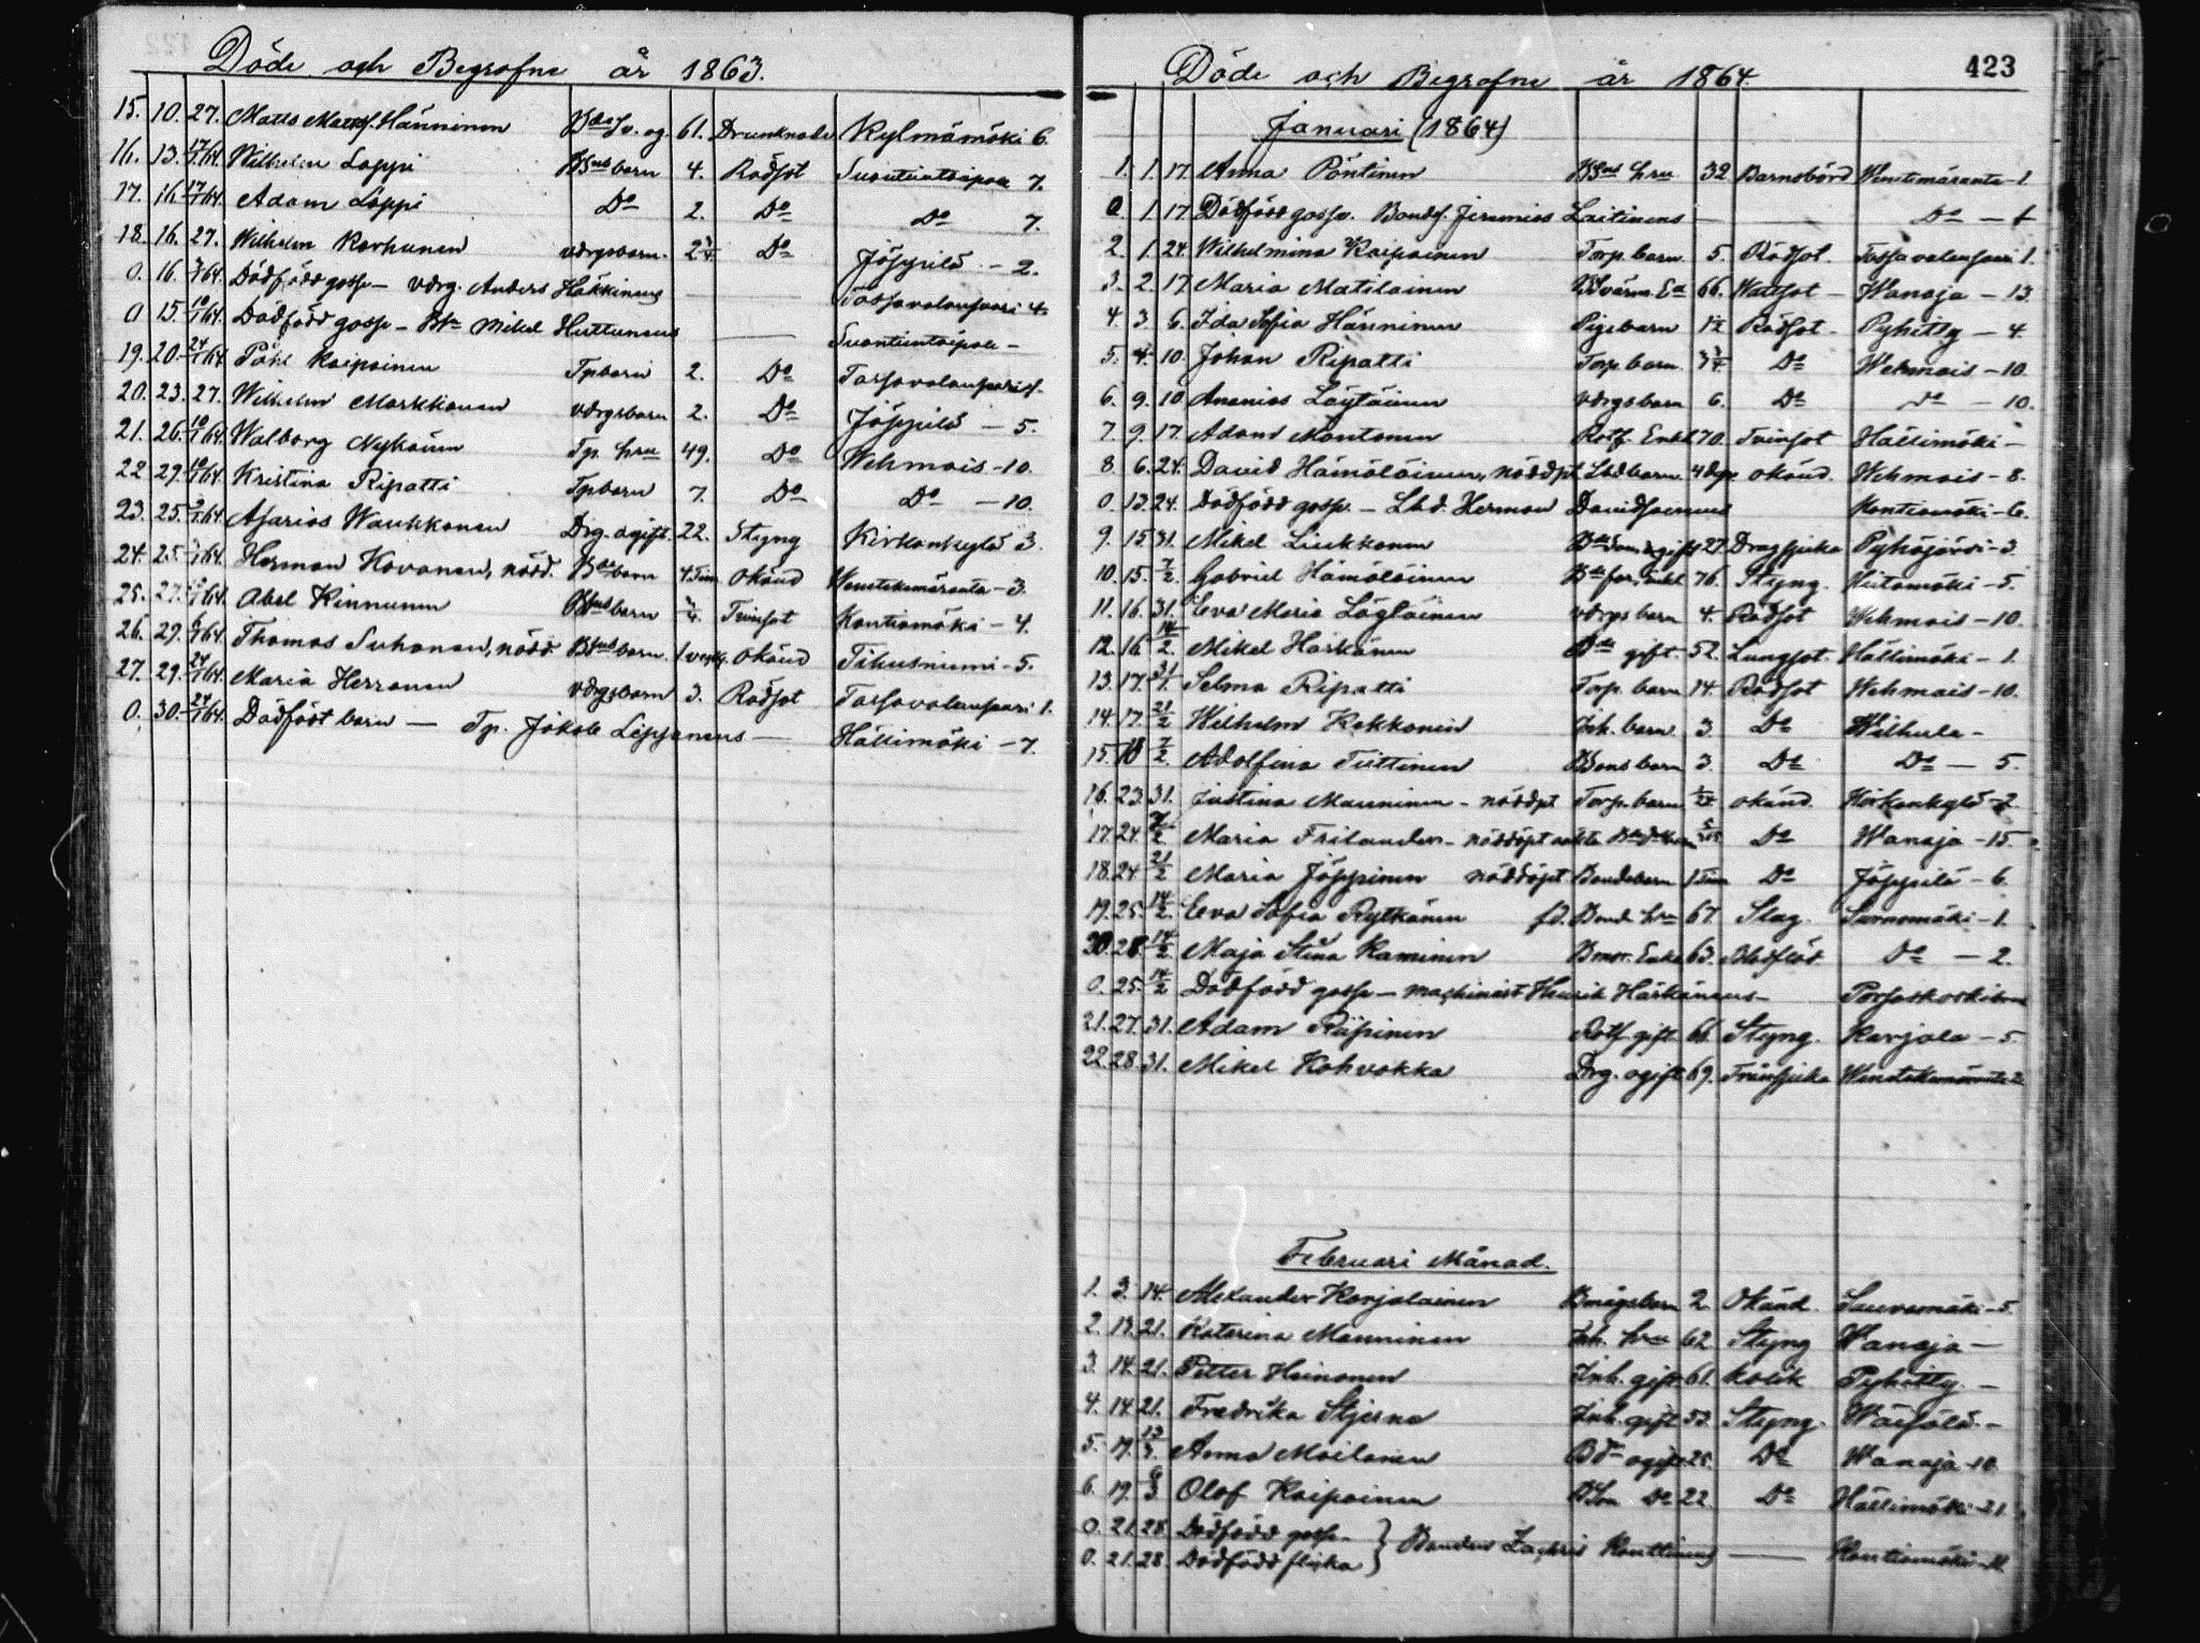 Döde och Begrafne år 1863.
15. 10. 27. Matts Mattss. Hänninen 61. Drunknade Kylmämäki 6.
16. 13. 17/1 64. Wilhelm Loppi BSns barn 4. Rödsot Suontientaipale 7.
17. 16. 17/1 64. Adam Loppi Do 2. Do Do 7.
18. 16. 27. Wilhelm Korhunen vdrgsbarn 2 3/4 Do Jäppilä - 2.
0. 16. 64. Dödfödd gosse - vdrg. Anders Häkkinens Tossavalansaari 4.
0 15. 10/1 64. Dödfödd gosse - Mikel Huttunens Suontientaipale -
19. 20. 24/1 64. Påhl Kaipainen Tpbarn 2. Do Tossavalansaari
20. 23. 27. Wilhelm Markkanen vdrgsbarn 2. Do Jäppilä - 5.
21. 26. 10/1 64. Walborg Nykänen Tp. hru 49. Do Wehmais - 10.
22 29. 10/1 64. Kristina Ripatti Tpbarn 7. Do Do - 10.
23. 25. 64. Asarias Waukkonen Drg. ogift. 22. Styng Kirkonkylä 3.
24. 25. 64. Herman Hovanen, nödd. barn 4 Tim okänd Wenetekmäranta - 3.
25. 27. 64. Abel Kinnunen barn Tvinsot Kontiomäki - 4.
26. 29. 64. Thomas Suhonen, nödd. barn. 1 veck. okänd Tihusniemi - 5.
27. 29. 24/1 64. Maria Herranen vdrgsbarn 3. Rödsot Tossavalansaari 1.
0. 30. 24/1 64. Dödfödt barn - Tp. Jakob Lippanens - Hällimäki - 7.
423
Döde och Begrafne år 1864.
Januari (1864)
1. 1. 17. Anna Pöntinen BSns hru 32 Barnsbörd - 1.
0. 1. 17. Dödfödd gosse. Bonds. Jeremias Laitinens - Do - 1
2. 1. 24. Wilhelmina Kaipainen Torp. barn 5. Rödsot. Tossavalansaari 1.
3. 2. 17. Maria Matilainen 66. Wattsot - Wanaja - 13.
4. 3. 6. Ida Sofia Hänninen Pigebarn 1 1/2 Rödsot - Pyhitty - 4.
5. 4. 10. Johan Ripatti Torp. barn 3 3/4 Do Wehmais - 10.
6. 9. 10 Ananias Löytäinen vdrgsbarn 6. Do Do - 10.
7. 9. 17. Adam Mantonen Rotf. Enkl 70. Tvinsot Hällimäki -
8. 6. 24. David Hämäläinen, nöddpt Lbdbarn 4 dgr okänd. Wehmais - 8.
0. 13. 24. Dödfödd gosse. - Lbd. Herman Davidsainens Kontiomäki - 6.
9. 15. 31. Mikel Liukkonen 27. Dragsjuka Pyhäjärvi - 3.
10. 15. 7/2. Gabriel Hämäläinen 76. Styng. Niitomäki - 5.
11. 16. 31. Eva Maria Löytäinen vdrgs barn 4. Rödsot Wehmais - 10.
12. 16. 14/2. Mikel Härkänen gift. 52. Lungsot. Hällimäki - 1.
13. 17. 31/1. Selma Ripatti Torp. barn 14. Rödsot Wehmais - 10.
14. 17. 21/2 Wilhelm Kekkonen Inh. barn 3. Do Wilhula -
15. 18 7/2. Adolfina Tiittinen Bons barn 3. Do Do - 5.
16. 23. 31. Justina Manninen - nöddpt Torp. barn okänd. Kirkonkylä - 2
17 24. 7/2 Maria Frilander - nöddöpt Do Wanaja - 15.
18. 24 21/2 Maria Jäppinen nöddöpt Bondebarn 1 Tim Do Jäppilä - 6.
19. 25. 14/2. Eva Sofia Rytkönen fd. Bond. hru 67. Slag. Surnumäki - 1.
20. 28. 14/2. Maja Stina Kaminen Bmor. Enka 63. Blodflöd Do - 2.
0. 25. 14/2 Dödfödd gosse - machinist Henrik Härkänens - Porsaskoski
21. 27. 31. Adam Räsinen Rotf. gift 66. Styng. Karjala - 5
22 28. 31. Mikel Kohvakka Drg. ogift 69. Tränsjuka
Februari Månad.
1. 3. 14. Alexander Karjalainen Bmågsbarn 2. Okänd. - 5.
2. 13. 21. Katarina Manninen Inh. hru 62 Styng Wanaja -
3. 14. 21. Petter Heinonen Inh. gift 61. Kolik Pyhitty -
4. 14 21. Fredrika Stjerna Inh. gift 52. Styng. -
5. 19. 13/3. Anna Moilanen ogift 25. Do Wanaja - 10
6. 19. 6/3 Olof Kaipainen BSon Do 22. Do Hällimäki - 21.
0. 21. 28. Dödfödd gosse. } Bondens Zachris Konttinens - Kontiomäki - 11.
0. 21. 28. Dödfödd flicka }